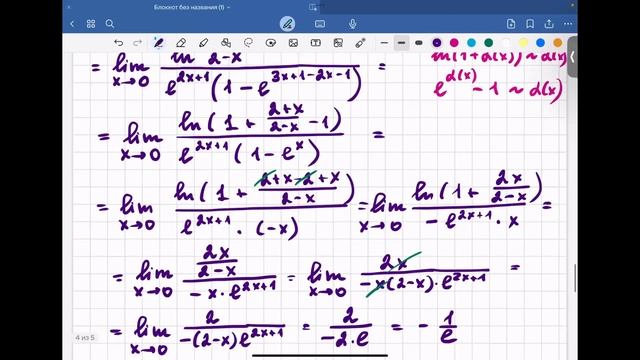 Блокнот без названия (1)
= lim x→0 ln 2-x / e^{2x+1}(1-e^{3x+1-2x-1}) =
ln(1+α(x))~α(x)
e^{α(x)} - 1 ~ α(x)
= lim x→0 ln(1 + (2+x)/(2-x) - 1) / e^{2x+1}(1-e^x) =
= lim x→0 ln(1 + (2+x-2+x)/(2-x)) / e^{2x+1} · (-x) = lim x→0 ln(1 + 2x/(2-x)) / -e^{2x+1} · x =
= lim x→0 (2x/(2-x)) / -x·e^{2x+1} = lim x→0 2x / -x(2-x)·e^{2x+1} =
= lim x→0 2 / -(2-x)e^{2x+1} = 2 / -2·e = - 1/e
4 из 5